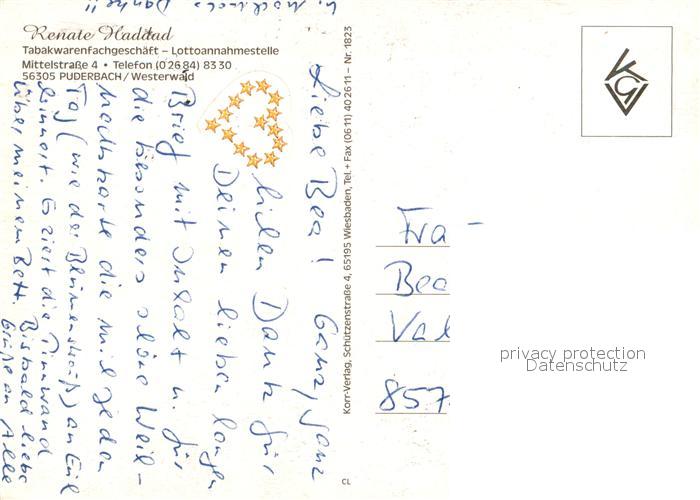 Renate Haddad
Tabakwarenfachgeschäft – Lottoannahmestelle
Mittelstraße 4 • Telefon (0 26 84) 83 30
56305 PUDERBACH / Westerwald
Liebe Bea! Ganz, ganz
lieben Dank für
Deinen lieben langen
Brief mit Inhalt u. für
die besonders schöne Weih-
nachtskarte die mich jeden
Tag (wie der Blumenstrauß) an Euch
erinnert. Es ziert die Pinnwand
über meinem Bett. Bis bald liebe
Grüße an Alle
u. nochmals Danke!!
Korr-Verlag, Schützenstraße 4, 65195 Wiesbaden, Tel. + Fax (06 11) 40 26 11 – Nr. 1823
CL
KGV
Fra
Bea
Val
857
privacy protection
Datenschutz